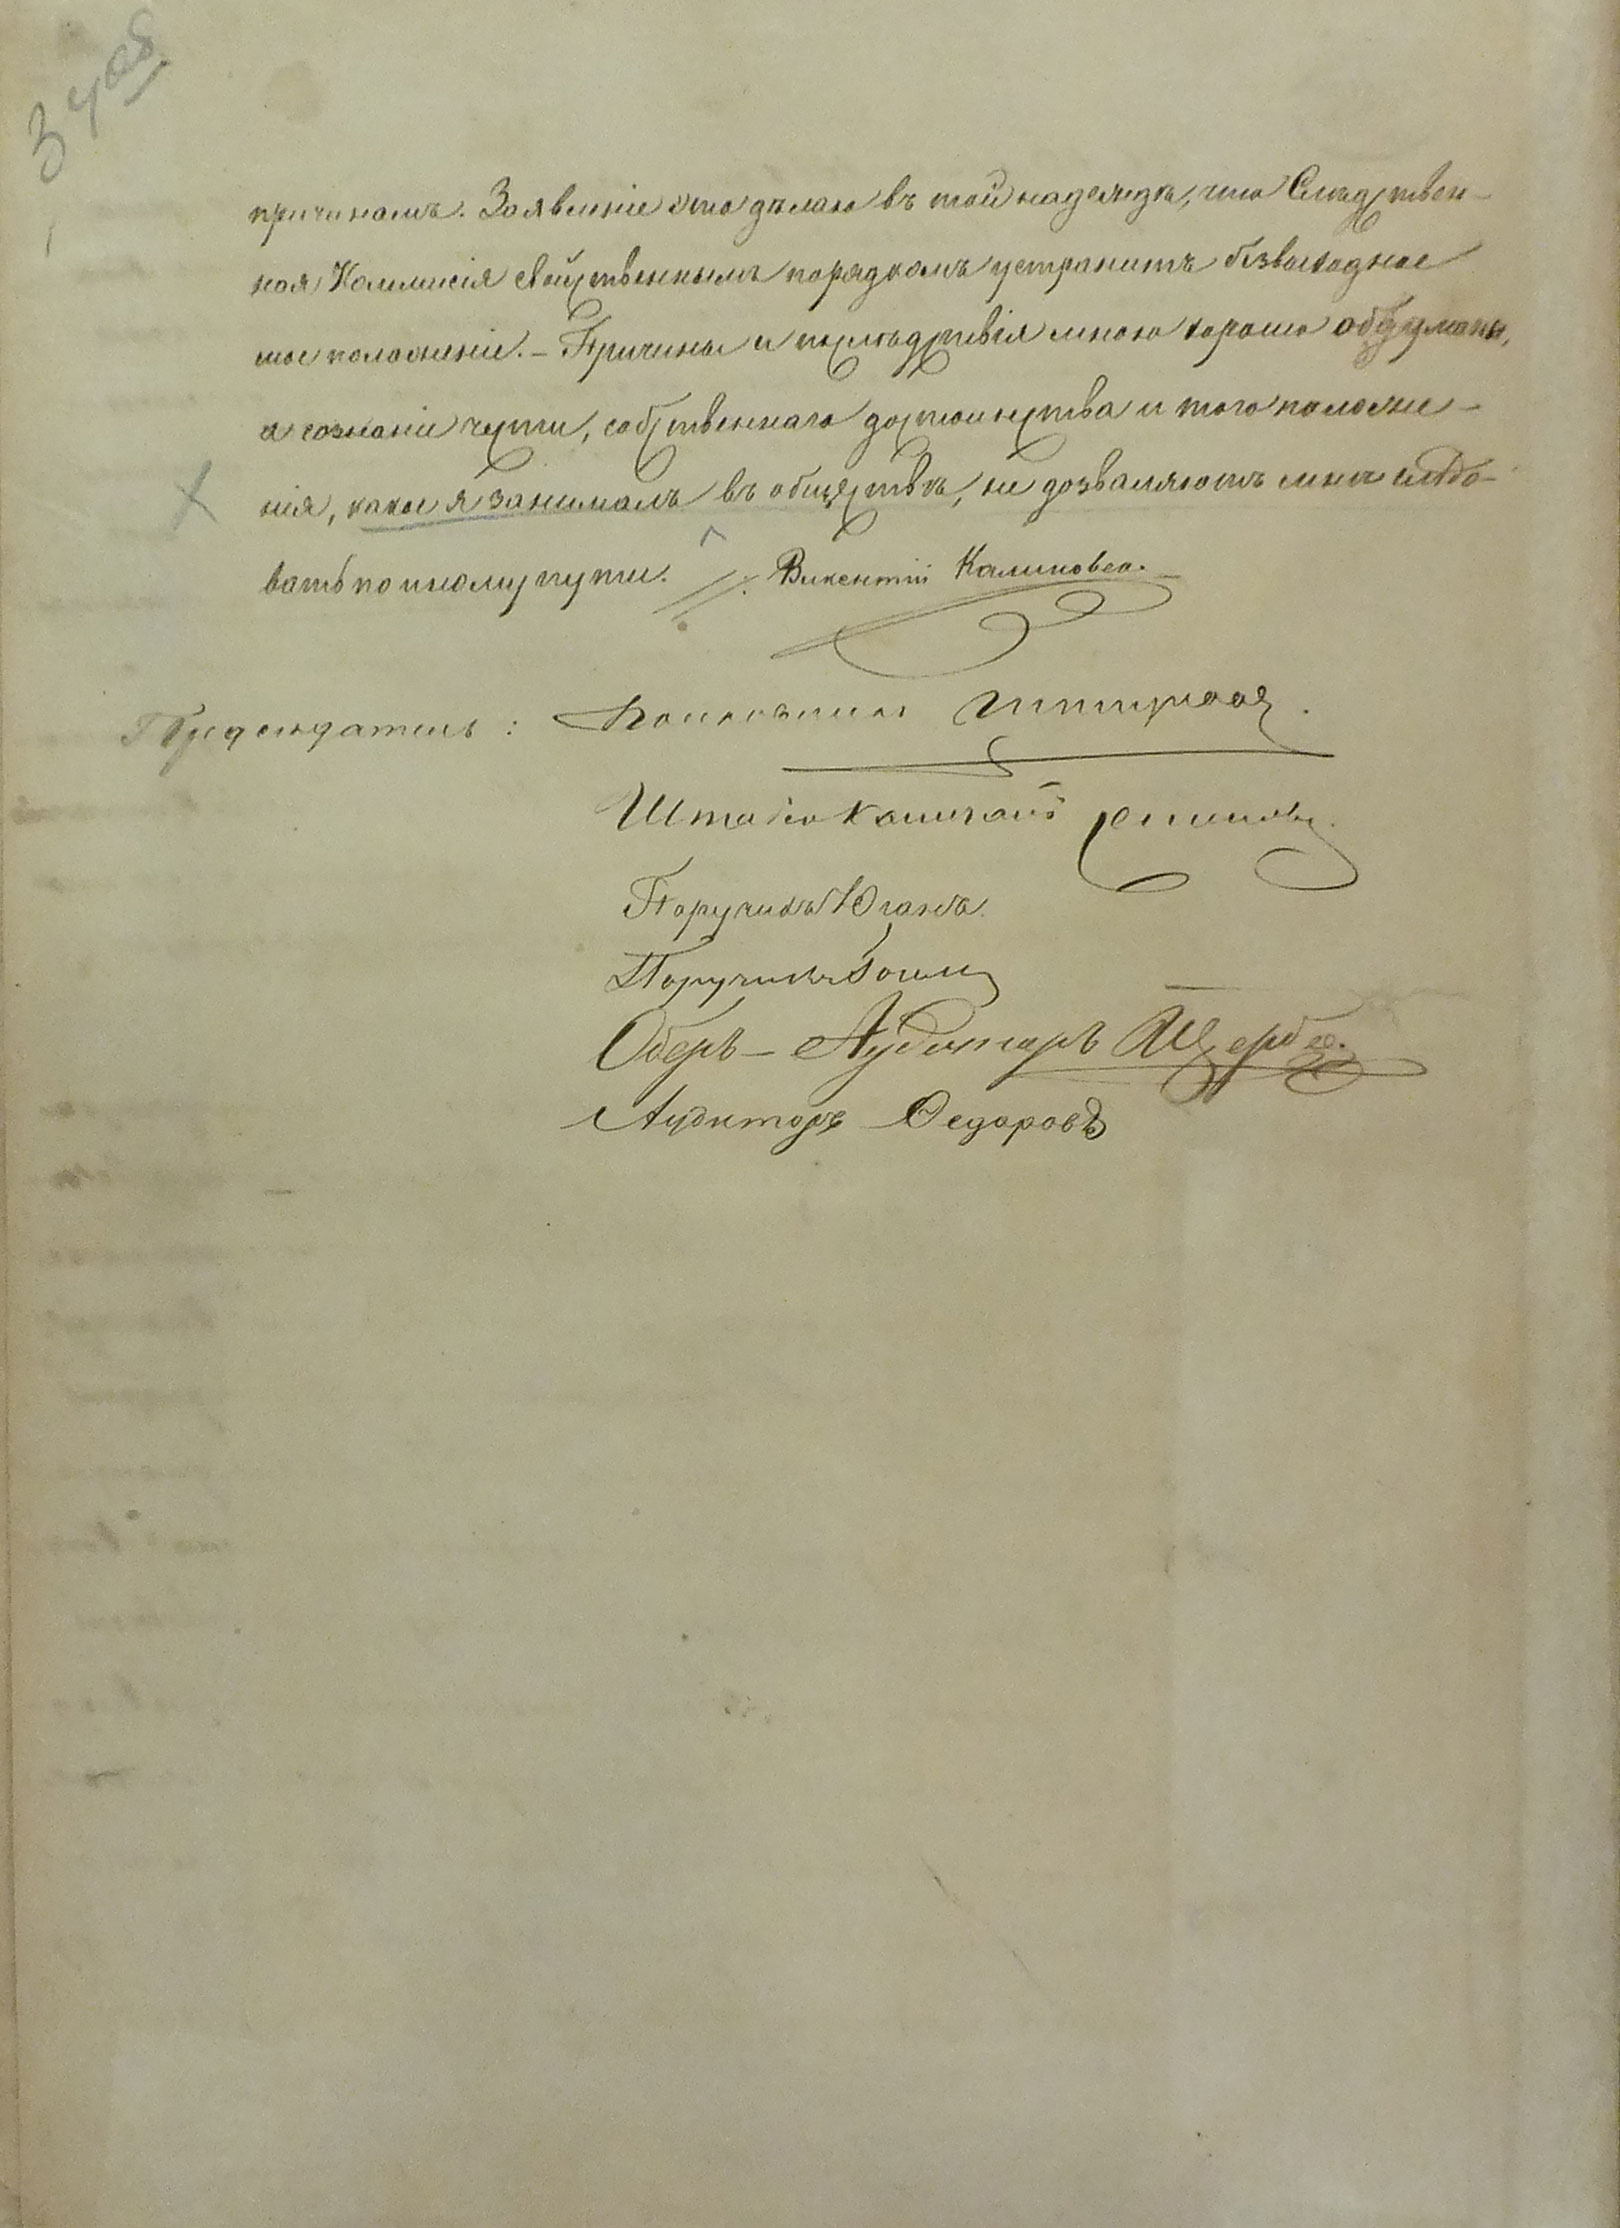 34 об.
причинамъ. Заявленіе это дѣлаю въ той надеждѣ, что Слѣдствен-
ная Коммисія свойственнымъ порядкомъ устранитъ безвыходное
мое положеніе. – Причины и послѣдствія мною хорошо обдуманы,
а сознаніе чести, собственнаго достоинства и того положе-
нія, какое я занималъ въ обществѣ, не дозваляютъ мнѣ слѣдо-
вать по иному пути. Викентій Калиновск.
Предсѣдатель: Полковникъ
Штабсъ Капитанъ
Поручикъ Юганъ
Поручикъ
Оберъ-Аудиторъ Щерба.
Аудиторъ Ѳедоровъ